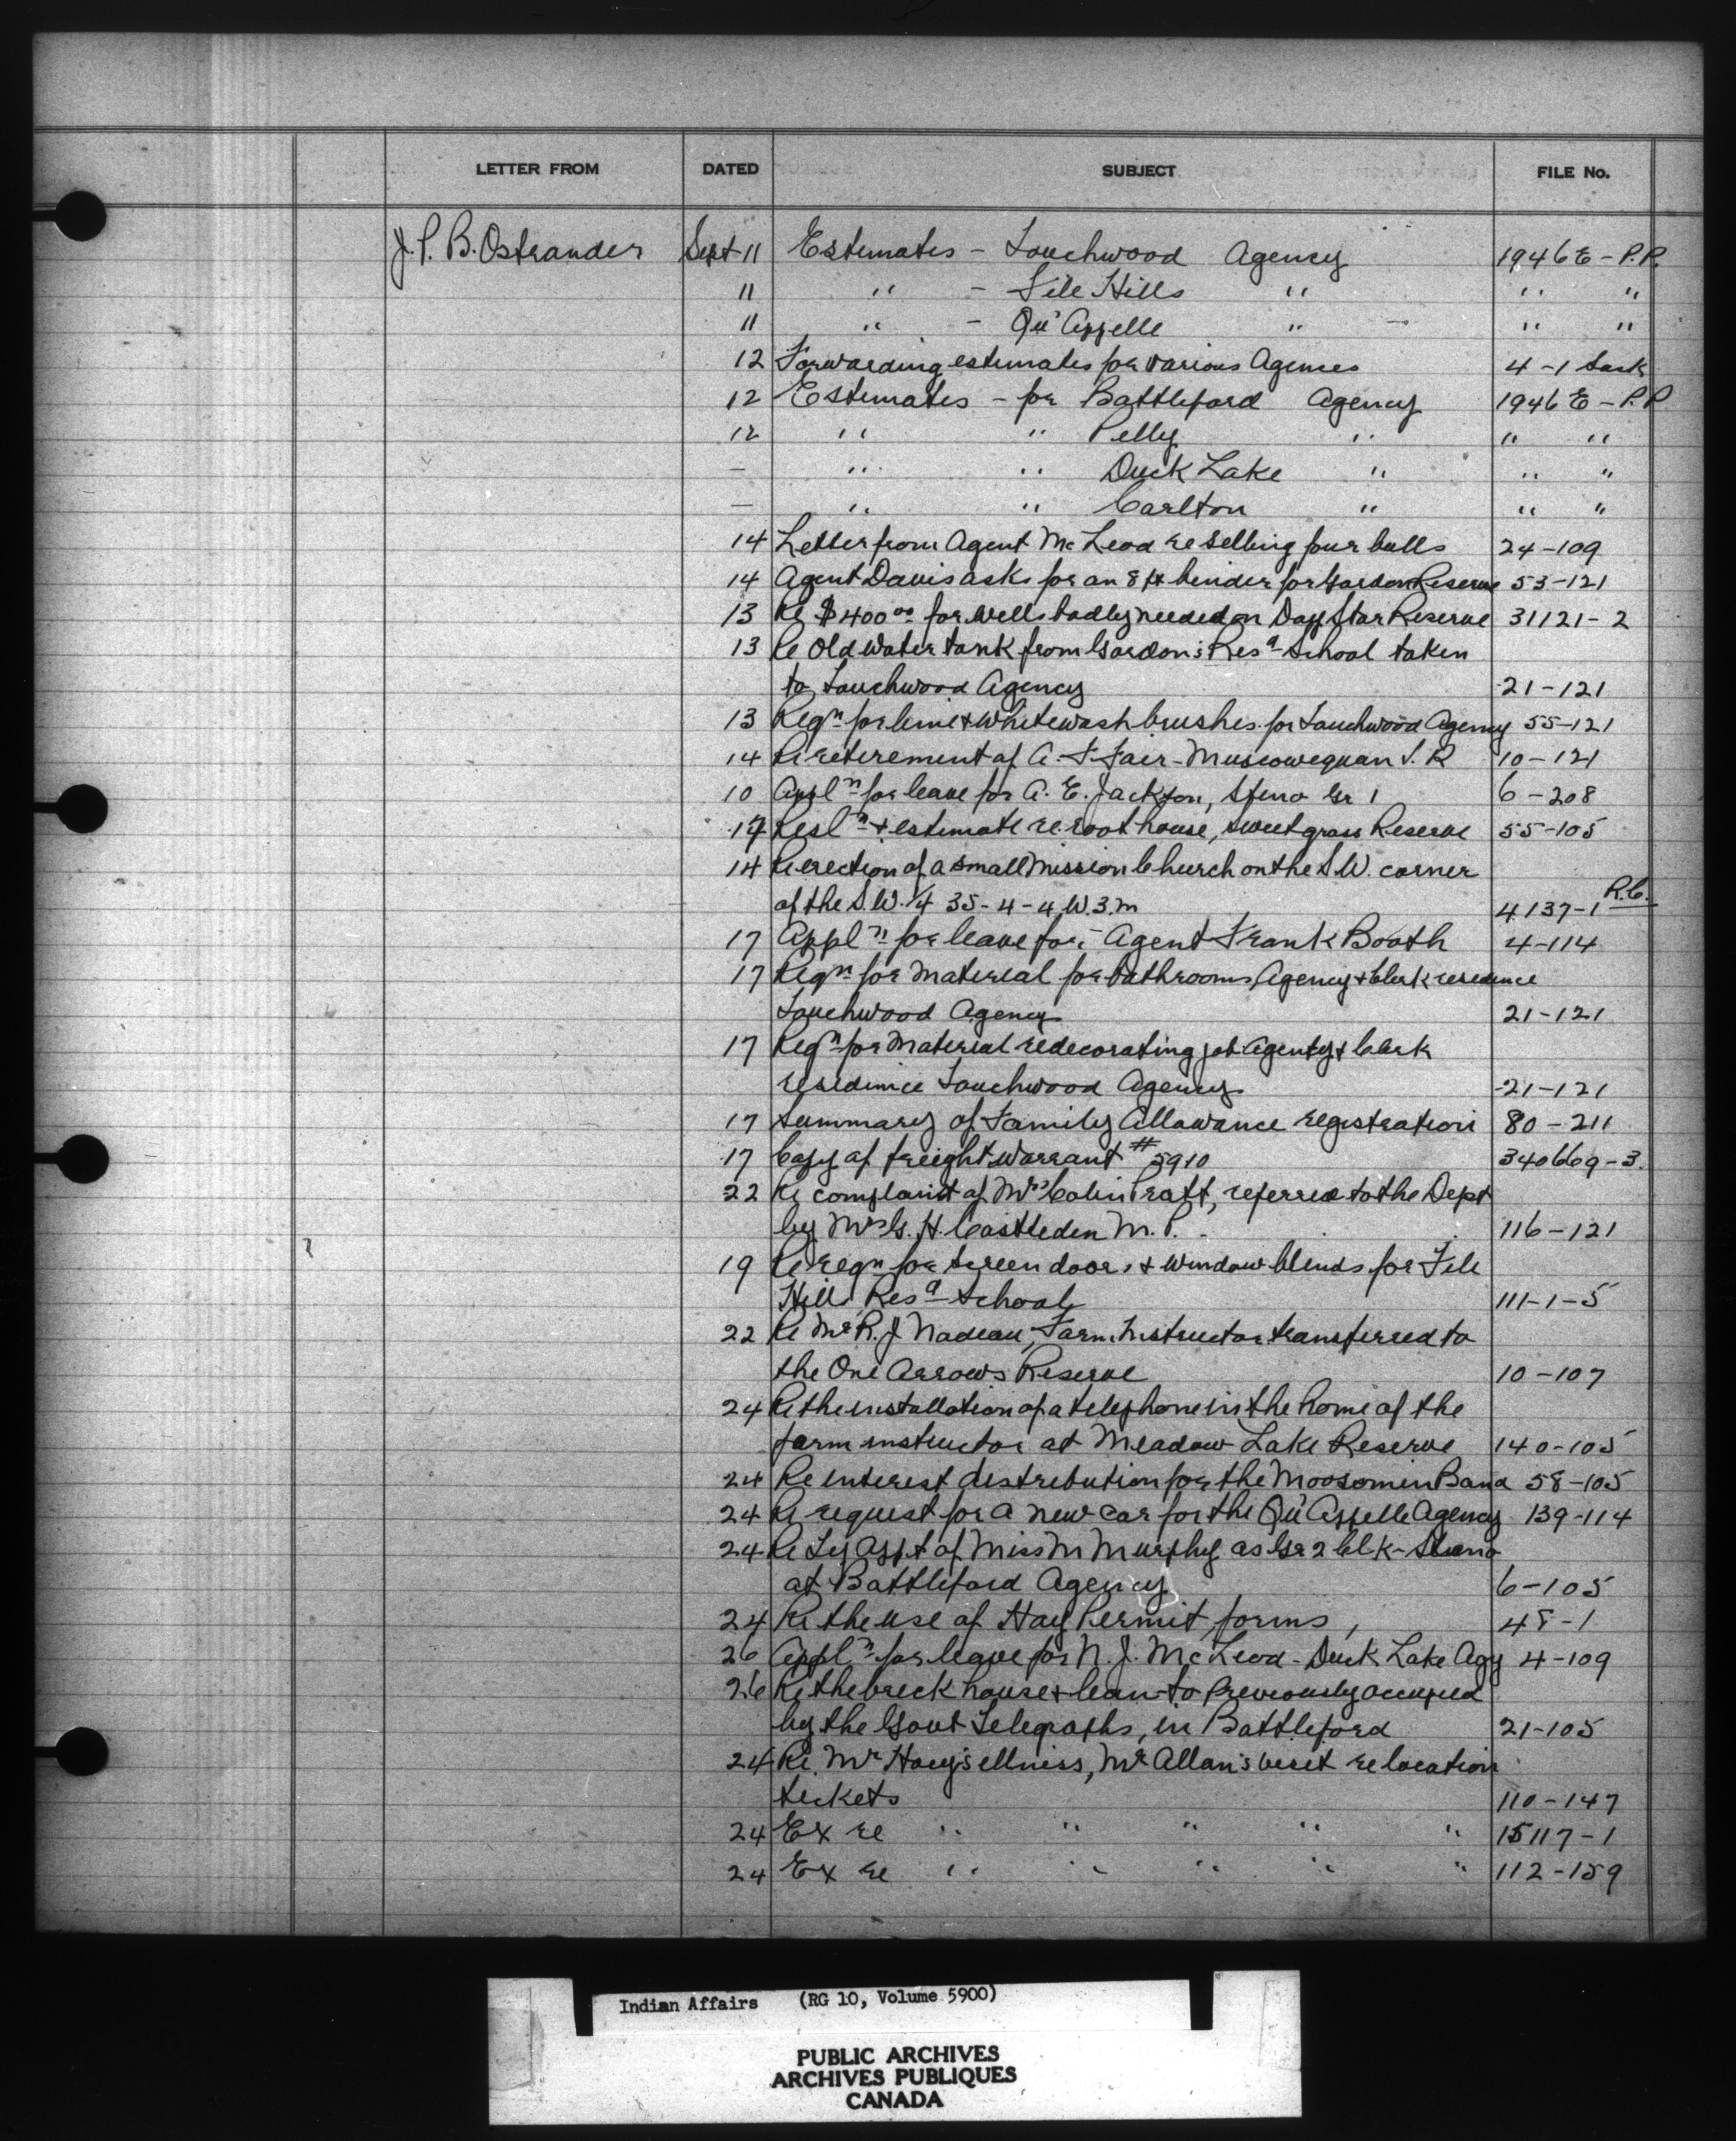 LETTER FROM DATED SUBJECT FILE No.
J. P. B. Ostrander Sept 11 Estimates - Touchwood Agency 1946 E - P.P.
11 " - File Hills " " "
11 " - Qu'Appelle " " "
12 Forwarding estimates for various Agencies 4-1 Sask
12 Estimates - for Battleford Agency 1946 E - P.P
12 " " Pelly " " "
- " " Duck Lake " " "
- " " Carlton " " "
14 Letter from Agent McLeod re selling four bulls 24-109
14 Agent Davis asks for an 8 ft binder for Gordon Reserve 53-121
13 Re $400.00 for wells badly needed on Day Star Reserve 31121-2
13 Re Old water tank from Gordon's Resd School taken
to Touchwood Agency 21-121
13 Reqn for lime & whitewash brushes for Touchwood Agency 55-121
14 Re retirement of A. F. Fair - Muscowequan I. R 10-121
10 Appln for leave for A. E. Jackson, Steno Gr 1 6-208
17 Resln & estimate re root house, Sweet grass Reserve 55-105
14 Re erection of a small Mission Church on the S.W. corner
of the S.W. 1/4 35-4-4 W.3.m 4137-1 R.C.
17 Appln for leave for - Agent Frank Booth 4-114
17 Reqn for material for bathrooms, Agency & Clerk residence
Touchwood Agency 21-121
17 Reqn for material redecorating job Agency & Clerk
residence Touchwood Agency 21-121
17 Summary of Family Allowance registration 80-211
17 Copy of freight warrant #5910 340669-3.
22 Re complaint of Mrs Colin Pratt, referred to the Dept
by Mr G. H. Castleden M. P. 116-121
19 Re reqn for screen doors & window blinds for File
Hills Resd School 111-1-5
22 Re Mr R. J. Nadeau, Farm Instructor transferred to
the One Arrows Reserve 10-107
24 Re the installation of a telephone in the home of the
farm instructor at Meadow Lake Reserve 140-105
24 Re interest distribution for the Moosomin Band 58-105
24 Re request for a new car for the Qu'Appelle Agency 139-114
24 Re Ty Appt of Miss M Murphy as Gr 2 Clk-Steno
at Battleford Agency 6-105
24 Re the use of Hay Permit forms, 48-1
26 Appln for leave for N. J. McLeod - Duck Lake Agy 4-109
26 Re the brick house & lean-to previously occupied
by the Govt Telegraphs, in Battleford 21-105
24 Re. Mr Hoey's illness, Mr Allan's visit re location
tickets 110-147
24 Ex re " " " " " 15117-1
24 Ex re " " " " " 112-159
Indian Affairs (RG 10, Volume 5900)
PUBLIC ARCHIVES
ARCHIVES PUBLIQUES
CANADA